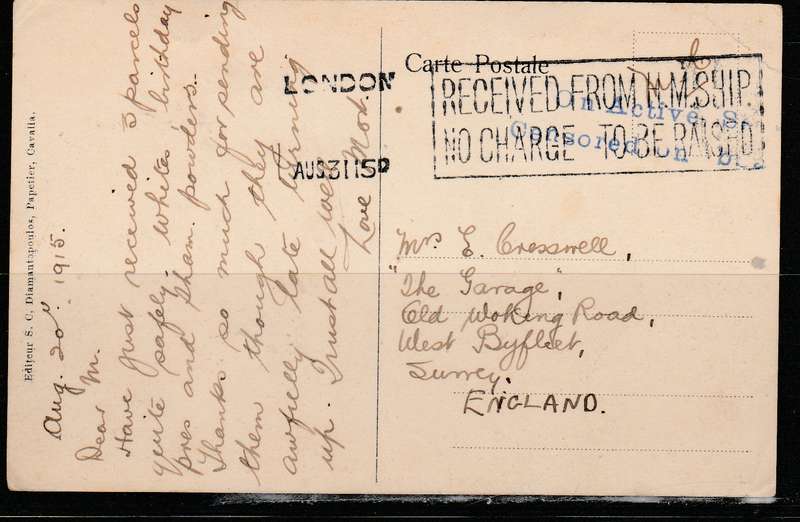 Carte Postale
LONDON
AUG 31 15
RECEIVED FROM H.M. SHIP.
NO CHARGE TO BE RAISED.
On Active S
Censored on b
Editeur S. C. Diamantopoulos, Papetier, Cavalla.
Aug. 20th 1915.
Dear M.
Have just received 3 parcels
quite safely. Whites birthday
pres and Sham. powders.
Thanks so much for sending
them though they are
awfully late turning
up. Trust all well
Love
Mrs E. Cresswell,
"The Garage",
Old Woking Road,
West Byfleet,
Surrey.
ENGLAND.